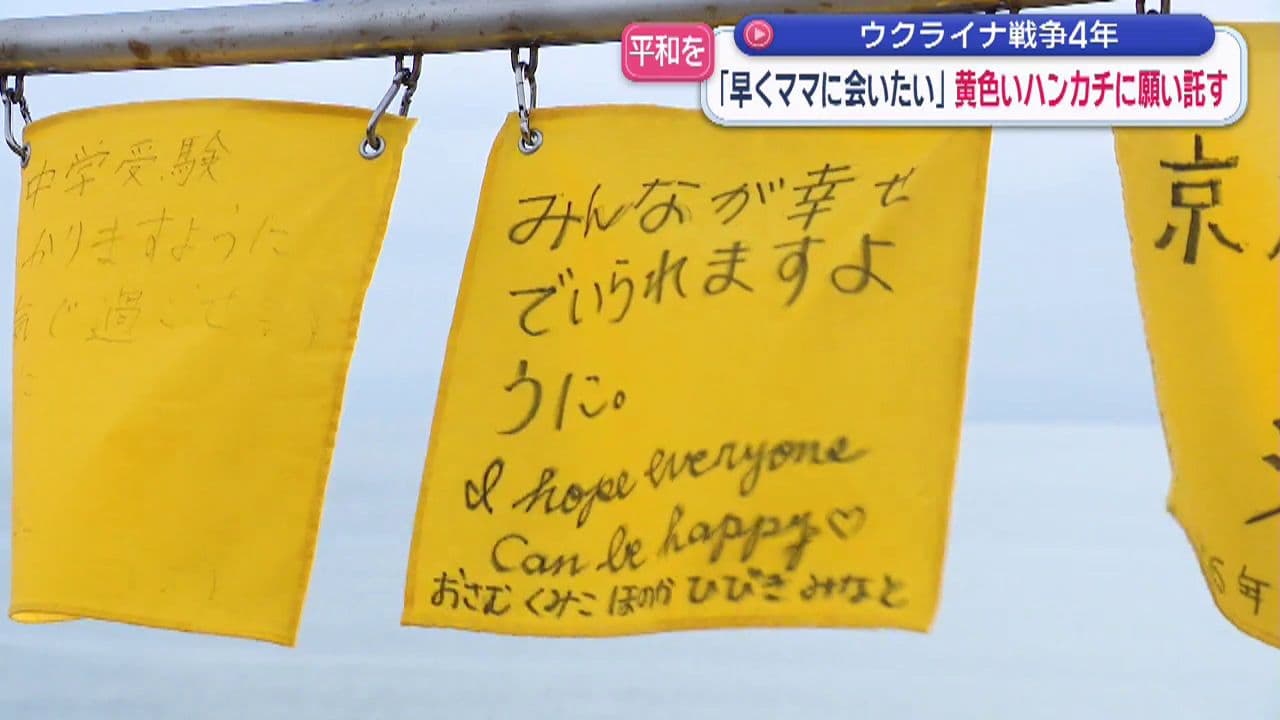 平和を
ウクライナ戦争4年
「早くママに会いたい」黄色いハンカチに願い託す
中学受験
かりますように
で過ごせ
みんなが幸せ
でいられますよ
うに。
I hope everyone
Can be happy♡
おさむ くみこ ほのか ひびき みなと
京
年